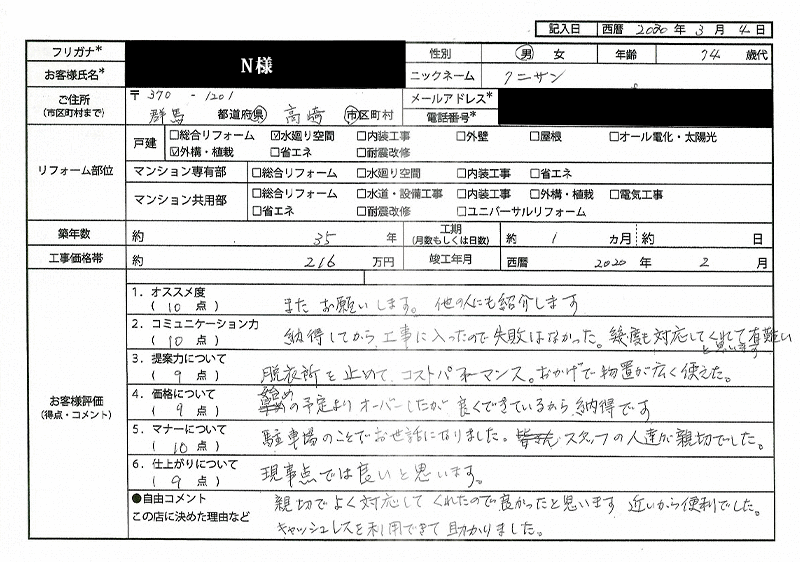 記入日 西暦 2020 年 3 月 4 日
フリガナ* N様 性別 男 女 年齢 74 歳代
お客様氏名* ニックネーム クニサン
ご住所 (市区町村まで) 〒370-1201 群馬 都道府県 高崎 市区町村 メールアドレス* 電話番号*
リフォーム部位 戸建 □総合リフォーム ☑水廻り空間 □内装工事 □外壁 □屋根 □オール電化・太陽光
☑外構・植栽 □省エネ □耐震改修
マンション専有部 □総合リフォーム □水廻り空間 □内装工事 □省エネ
マンション共用部 □総合リフォーム □水道・設備工事 □内装工事 □外構・植栽 □電気工事
□省エネ □耐震改修 □ユニバーサルリフォーム
築年数 約 35 年 工期 (月数もしくは日数) 約 1 ヵ月 約 日
工事価格帯 約 216 万円 竣工年月 西暦 2020 年 2 月
お客様評価 (得点・コメント)
1．オススメ度 ( 10 点 ) またお願いします。他の人にも紹介します
2．コミュニケーション力 ( 10 点 ) 納得してから、工事に入ったので失敗はなかった。幾度も対応してくれて有難い
と思います
3．提案力について ( 9 点 ) 脱衣所を止めて、コストパホーマンス。おかげで物置が広く使えた。
4．価格について ( 9 点 ) 始めの予定よりオーバーしたが良くできているから、納得です
5．マナーについて ( 10 点 ) 駐車場のことでお世話になりました。皆さんスタッフの人達が親切でした。
6．仕上がりについて ( 9 点 ) 現事点では良いと思います。
●自由コメント 親切でよく対応してくれたので良かったと思います 近いから便利でした。
この店に決めた理由など キャッシュレスを利用できて助かりました。